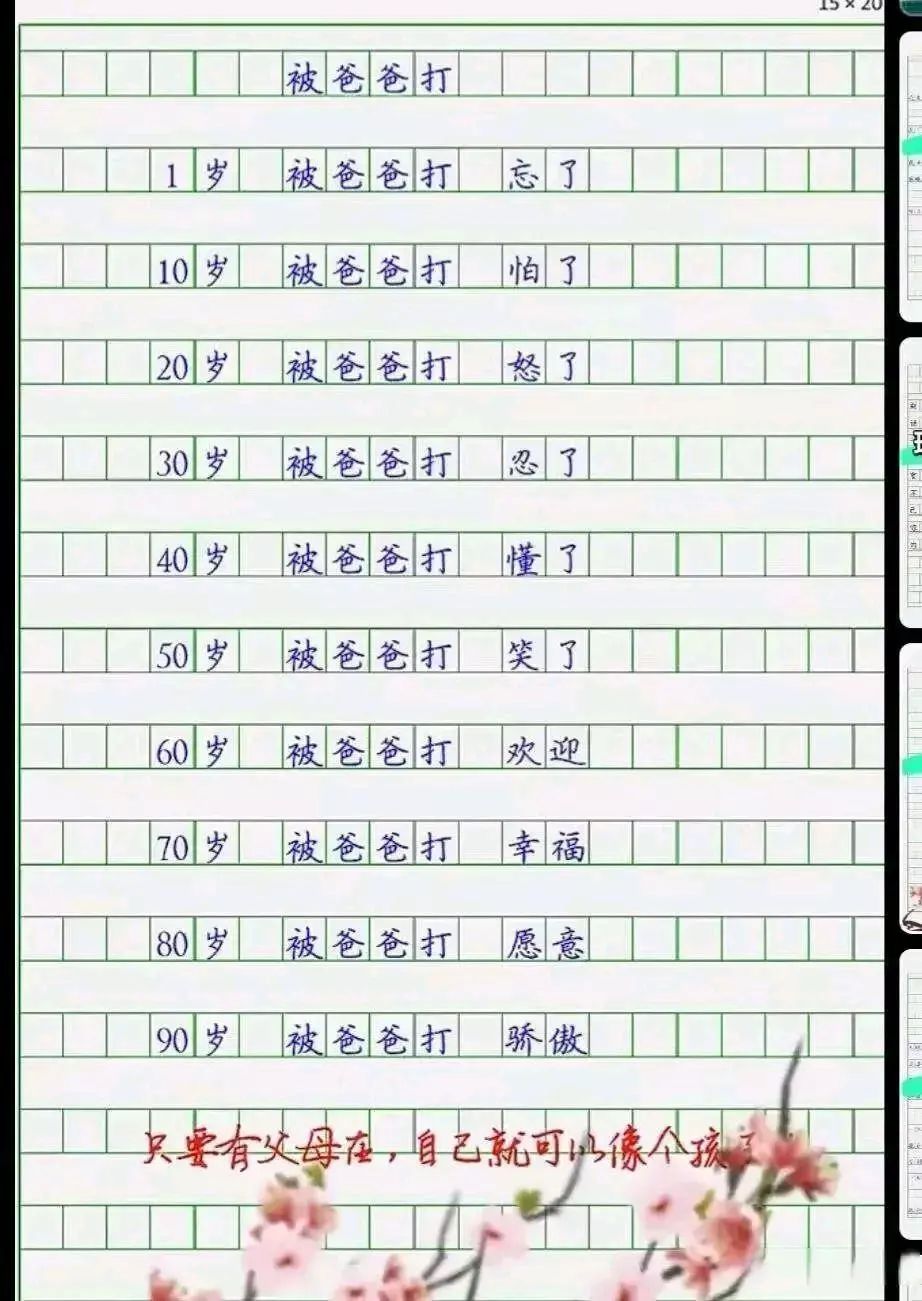 15×20
被爸爸打
1岁 被爸爸打 忘了
10岁 被爸爸打 怕了
20岁 被爸爸打 怒了
30岁 被爸爸打 忍了
40岁 被爸爸打 懂了
50岁 被爸爸打 笑了
60岁 被爸爸打 欢迎
70岁 被爸爸打 幸福
80岁 被爸爸打 愿意
90岁 被爸爸打 骄傲
只要有父母在，自己就可以像个孩子